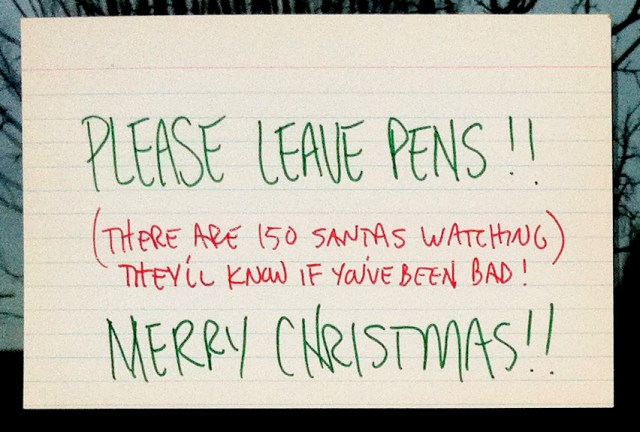 PLEASE LEAVE PENS!!
(THERE ARE 150 SANTAS WATCHING)
THEY'LL KNOW IF YOU'VE BEEN BAD!
MERRY CHRISTMAS!!